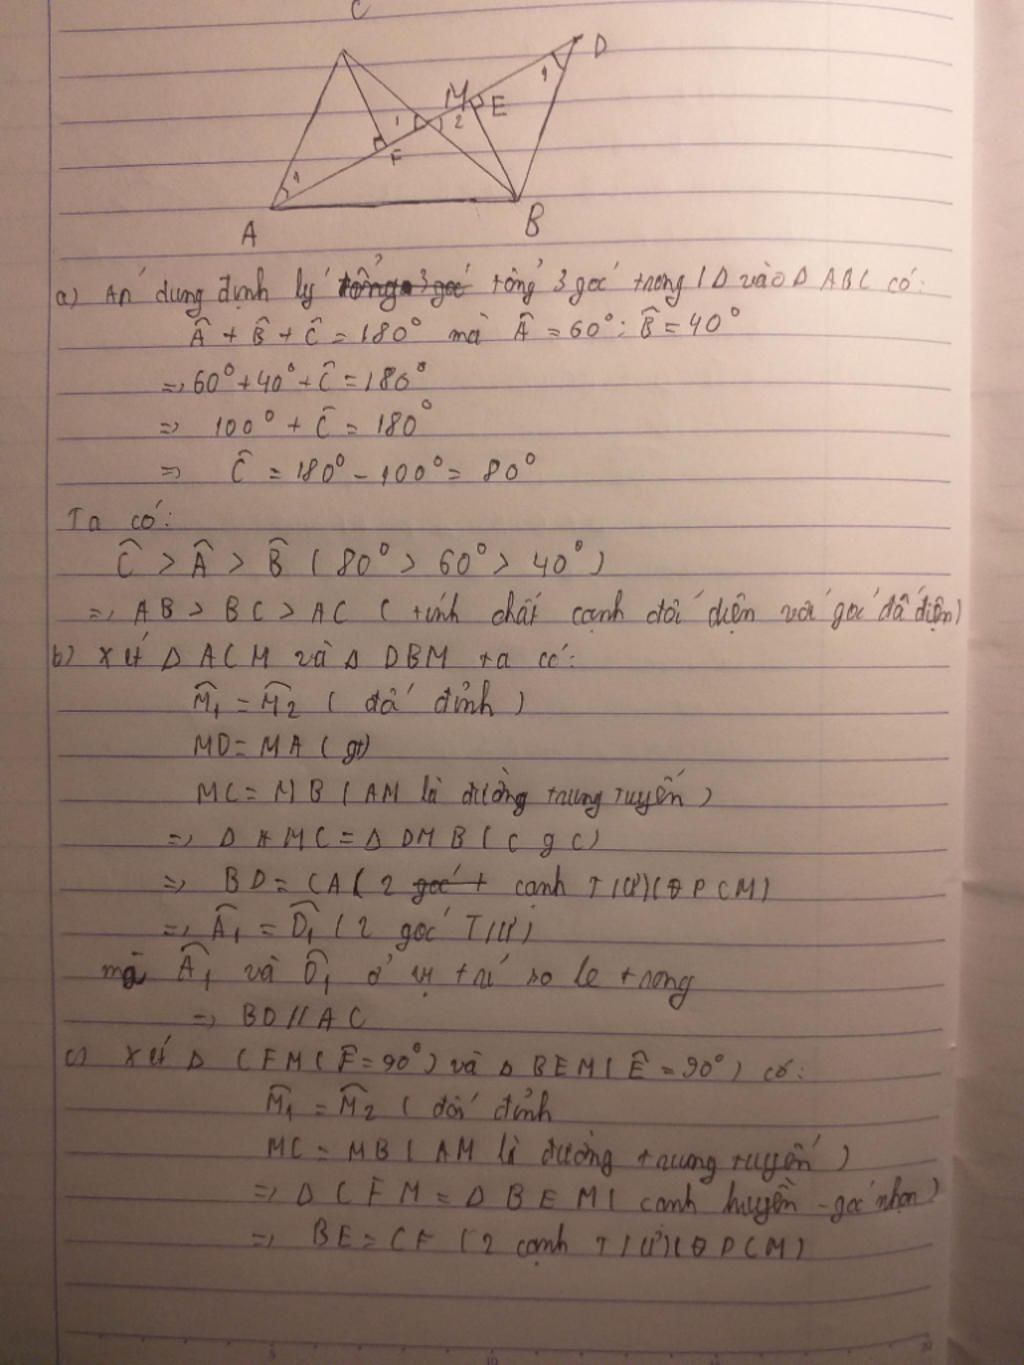 C
D
1
M
E
1
2
F
1
A
B
a) Áp dụng định lý tổng 3 góc tổng 3 góc trong 1 Δ vào Δ ABC có:
Â + B̂ + Ĉ = 180° mà Â = 60°; B̂ = 40°
=> 60° + 40° + Ĉ = 180°
=> 100° + Ĉ = 180°
=> Ĉ = 180° - 100° = 80°
Ta có:
Ĉ > Â > B̂ (80° > 60° > 40°)
=> AB > BC > AC (tính chất cạnh đối diện với góc đối diện)
b) Xét Δ ACM và Δ DBM ta có:
M̂₁ = M̂₂ (đối đỉnh)
MD = MA (gt)
MC = MB (AM là đường trung tuyến)
=> Δ AMC = Δ DMB (c g c)
=> BD = CA (2 góc t cạnh T/Ư) (ĐPCM)
=> Â₁ = D̂₁ (2 góc T/Ư)
mà Â₁ và D̂₁ ở vị trí so le trong
=> BD // AC
c) Xét Δ CFM (F̂ = 90°) và Δ BEM (Ê = 90°) có:
M̂₁ = M̂₂ (đối đỉnh
MC = MB (AM là đường trung tuyến)
=> Δ CFM = Δ BEM (cạnh huyền - góc nhọn)
=> BE = CF (2 cạnh T/Ư) (ĐPCM)